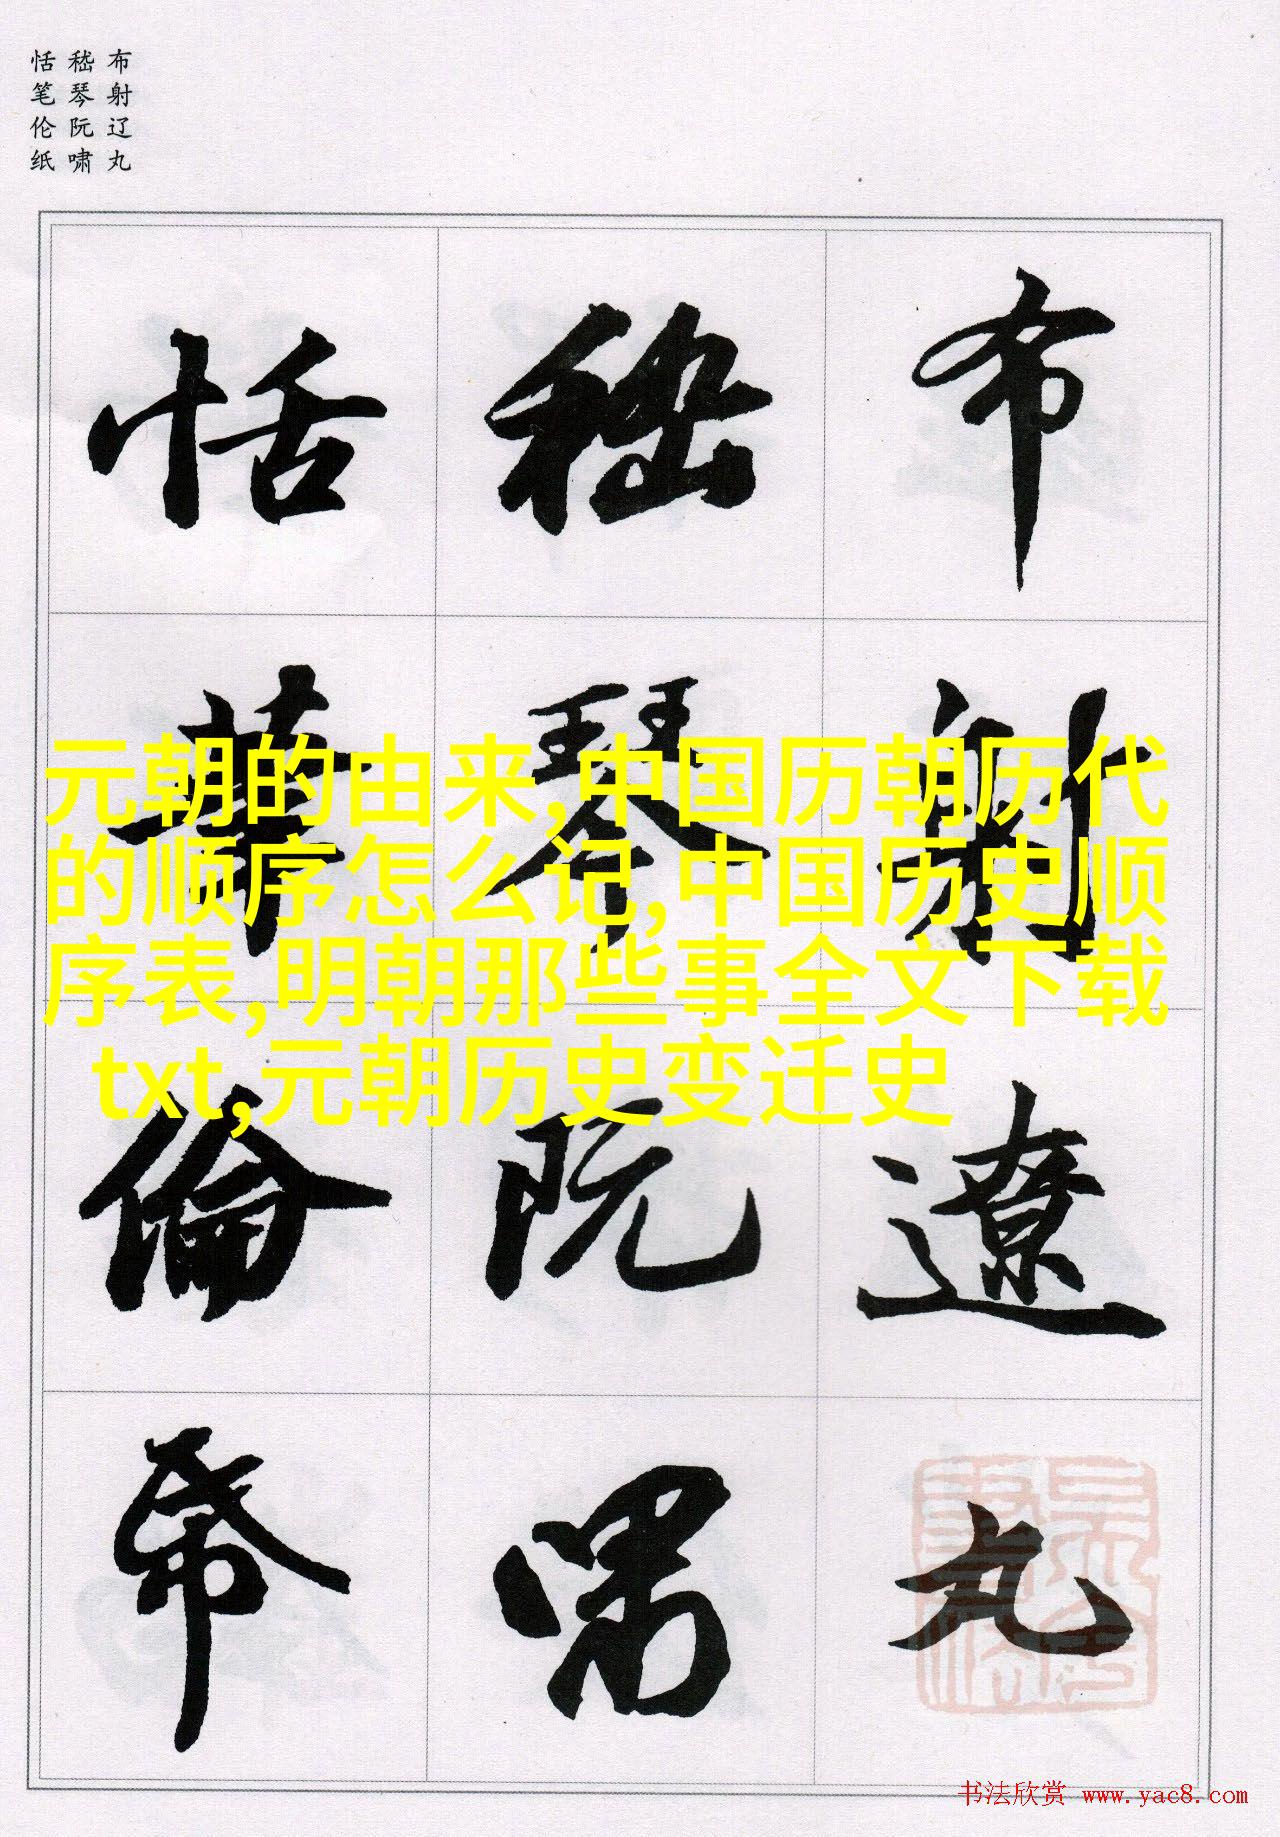 布射辽丸
嵇琴阮啸
恬笔伦纸
布射遼丸
嵇琴阮嘯
恬筆倫帋
元朝的由来,中国历朝历代
的顺序怎么记,中国历史顺
序表,明朝那些事全文下载
txt,元朝历史变迁史
书法欣赏 www.yac8.com